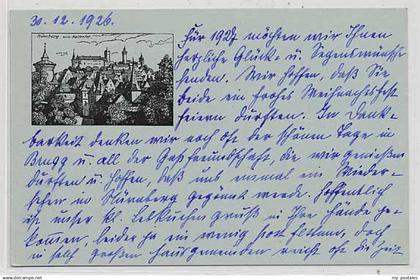 30.12.1926.
Nürnberg vom
Für 1927 möchten wir Ihnen
herzliche Glück- u. Segenswünsche
senden. Wir hoffen, daß Sie
beide ein frohes Weihnachtsfest
feiern durften. In Dank-
barkeit denken wir noch oft der schönen Tage in
Brugg u. all der Gastfreundschaft, die wir genießen
durften u. hoffen, daß uns einmal ein Wieder-
sehen in Nürnberg gegönnt werde. Hoffentlich
ist unser kl. Lebkuchengruß in Ihre Hände ge-
kommen, leider ja ein wenig post festum, doch
in solch großen Hausgemeinden reicht oft die Zeit
my postales